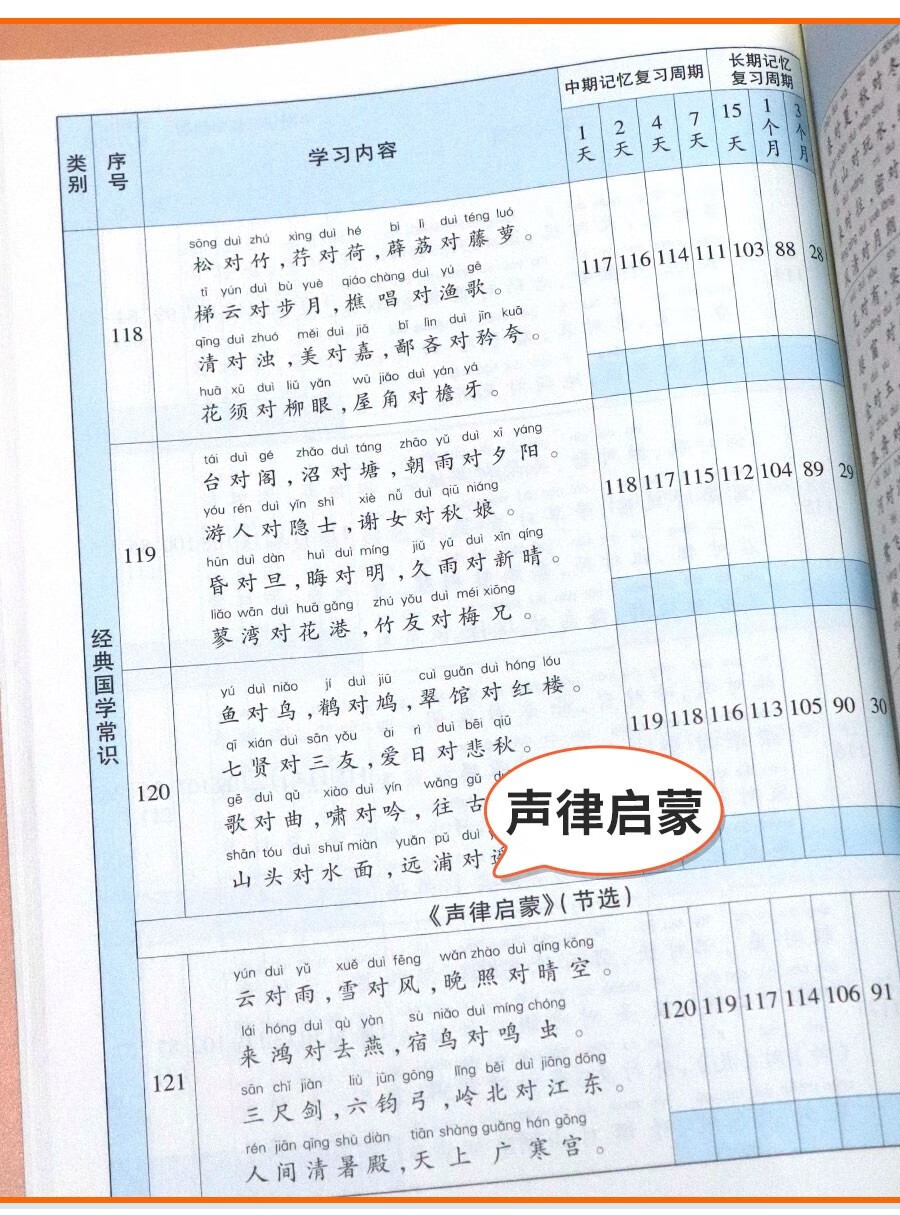 中期记忆复习周期
长期记忆
复习周期
类别
序号
学习内容
1天
2天
4天
7天
15天
1个月
3个月
经典国学常识
118
sōng duì zhú xìng duì hé bì lì duì téng luó
松对竹,荇对荷,薜荔对藤萝。
tī yún duì bù yuè qiáo chàng duì yú gē
梯云对步月,樵唱对渔歌。
qīng duì zhuó měi duì jiā bǐ lìn duì jīn kuā
清对浊,美对嘉,鄙吝对矜夸。
huā xū duì liǔ yǎn wū jiǎo duì yán yá
花须对柳眼,屋角对檐牙。
117 116 114 111 103 88 28
119
tái duì gé zhǎo duì táng zhāo yǔ duì xī yáng
台对阁,沼对塘,朝雨对夕阳。
yóu rén duì yǐn shì xiè nǚ duì qiū niáng
游人对隐士,谢女对秋娘。
hūn duì dàn huì duì míng jiǔ yǔ duì xīn qíng
昏对旦,晦对明,久雨对新晴。
liǎo wān duì huā gǎng zhú yǒu duì méi xiōng
蓼湾对花港,竹友对梅兄。
118 117 115 112 104 89 29
120
yú duì niǎo jí duì jiū cuì guǎn duì hóng lóu
鱼对鸟,鹡对鸠,翠馆对红楼。
qī xián duì sān yǒu ài rì duì bēi qiū
七贤对三友,爱日对悲秋。
gē duì qǔ xiào duì yín wǎng gǔ
歌对曲,啸对吟,往古
shān tóu duì shuǐ miàn yuǎn pǔ duì
山头对水面,远浦对
119 118 116 113 105 90 30
声律启蒙
《声律启蒙》(节选)
121
yún duì yǔ xuě duì fēng wǎn zhào duì qíng kōng
云对雨,雪对风,晚照对晴空。
lái hóng duì qù yàn sù niǎo duì míng chóng
来鸿对去燕,宿鸟对鸣虫。
sān chǐ jiàn liù jūn gōng lǐng běi duì jiāng dōng
三尺剑,六钧弓,岭北对江东。
rén jiān qīng shǔ diàn tiān shàng guǎng hán gōng
人间清暑殿,天上广寒宫。
120 119 117 114 106 91